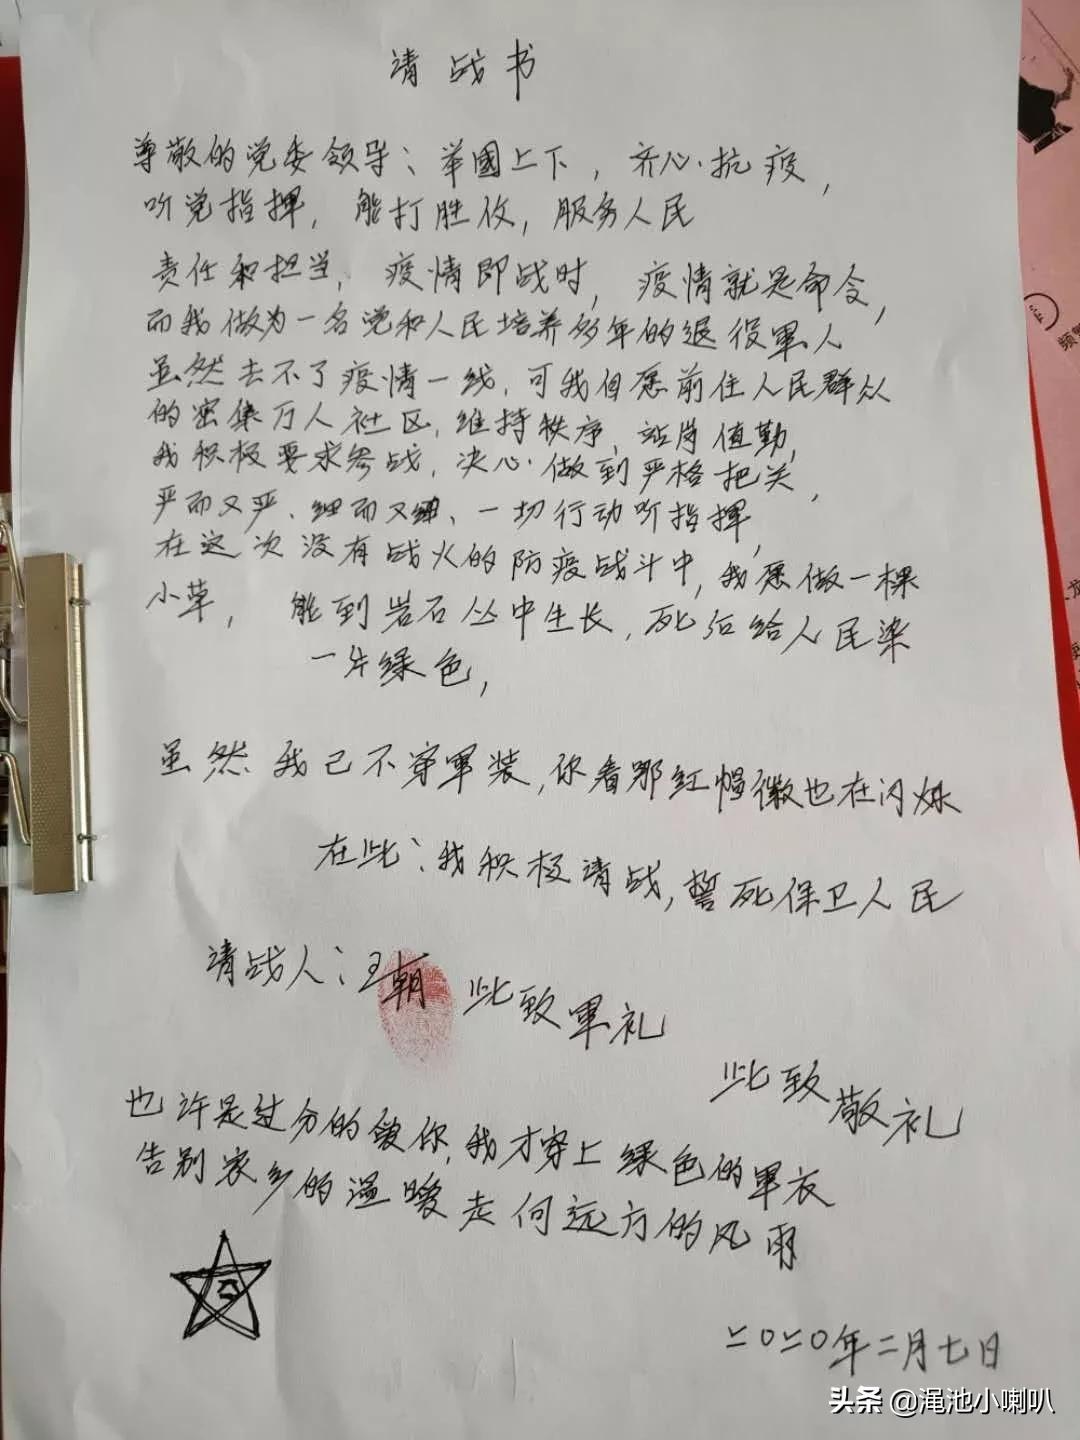 请战书
尊敬的党委领导：举國上下，齐心抗疫，
听党指挥，能打胜仗，服务人民
责任和担当，疫情即战时，疫情就是命令，
而我做为一名党和人民培养多年的退役軍人
虽然去不了疫情一线，可我自愿前往人民群众
的密集万人社区，维持秩序，站岗值勤，
我积极要求参战，决心做到严格把关，
严而又严、细而又细、一切行动听指挥，
在这次没有战火的防疫战斗中，我愿做一棵
小草，能到岩石丛中生长，死后给人民染
一片绿色，
虽然我已不穿军装，你看那红帽徽也在闪烁
在此：我积极请战，誓死保卫人民
请战人：王朝 此致軍礼
此致敬礼
也许是过分的爱你，我才穿上绿色的軍衣
告别家乡的温暖走向远方的风雨
二〇二〇年二月七日
头条@渑池小喇叭